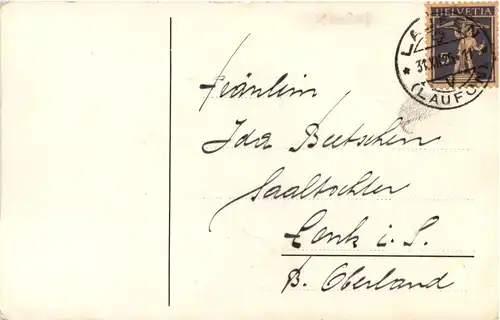 HELVETIA
LAUFEN
31.XII.25.-11
(LAUFON)
Fräulein
Ida Beetschen
Saaltochter
Lenk i. S.
B. Oberland